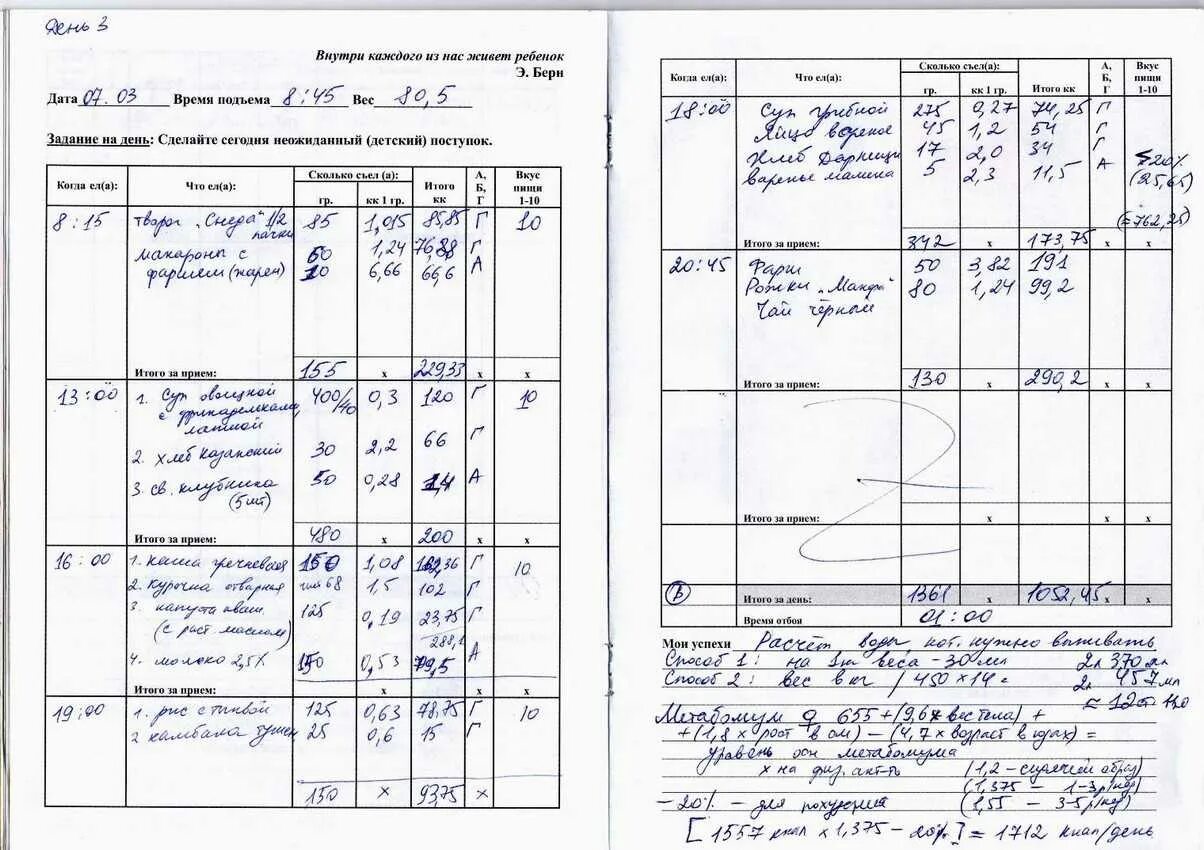 День 3
Внутри каждого из нас живет ребенок
Э. Берн
Дата 07.03 Время подъема 8:45 Вес 80,5
Задание на день: Сделайте сегодня неожиданный (детский) поступок.
Когда ел(а): Что ел(а): Сколько съел (а): гр. кк 1 гр. Итого кк А, Б, Г Вкус пищи 1-10
8:15 творог "Снеда" 1/2 85 1,015 85,85 Г 10
пачки
макароны с 60 1,24 76,88 Г
фаршем (жарен) 10 6,66 66,6 А
Итого за прием: 155 х 229,33 х х
13:00 1. Суп овощной 400/40 0,3 120 Г 10
с фрикадельками
лапшой
2. хлеб Казанский 30 2,2 66 Г
3. св. клубника 50 0,28 14 А
(5 шт)
Итого за прием: 480 х 200 х х
16:00 1. каша гречневая 150 1,08 162,36 Г 10
2. курочка отварная 68 1,5 102 Г
3. капуста кваш. 125 0,19 23,75 Г
(с раст маслом) 288,1
4. молоко 2,5% 150 0,53 79,5 А
Итого за прием: х х х
19:00 1. рис с тыквой 125 0,63 78,75 Г 10
2 камбала тушен 25 0,6 15 Г
150 х 93,75 х
Когда ел(а): Что ел(а): Сколько съел(а): гр. кк 1 гр. Итого кк А, Б, Г Вкус пищи 1-10
18:00 Суп грибной 275 0,27 74,25 Г
Яйцо вареное 45 1,2 54 Г
Хлеб Дарниц 17 2,0 34 Г
варенье малина 5 2,3 11,5 А 20%
(25,65)
(=762,25)
Итого за прием: 342 х 173,75 х х
20:45 Фарш 50 3,82 191
Рожки "Макфа" 80 1,24 99,2
Чай чёрный
Итого за прием: 130 х 290,2 х х
Итого за прием: х х х
Итого за день: 1361 х 1052,45 х х
Время отбоя 01:00
Мои успехи Расчёт воды, кот. нужно выпивать
Способ 1: на 1кг веса - 30 мл 2л 370 мл
Способ 2: вес в кг / 450 х 14 = 2л 457 мл
Метаболизм ♀ 655 + (9,6 х вес тела) +
+ (1,8 х рост в см) - (4,7 х возраст в годах) =
уровень осн метаболизма
х на физ. акт-ть (1,2 - сидячий образ)
(1,375 - 1-3 р/нед)
- 20% - для похудения (1,55 - 3-5 р/нед)
[1557 ккал х 1,375 - 20%] = 1712 ккал/день